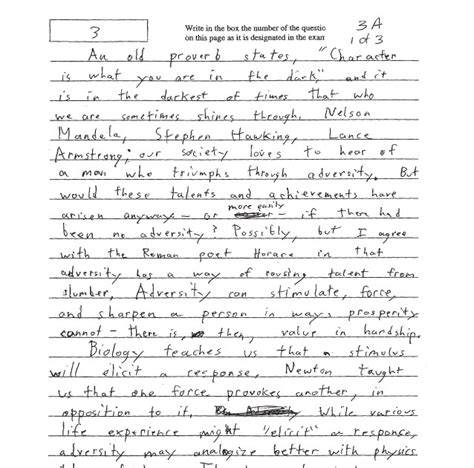 3
Write in the box the number of the questio
on this page as it is designated in the exam
3A
1 of 3
An old proverb states, "Character
is what you are in the dark," and it
is in the darkest of times that who
we are sometimes shines through. Nelson
Mandela, Stephen Hawking, Lance
Armstrong; our society loves to hear of
a man who triumphs through adversity. But
would these talents and achievements have
more easily
arisen anyway - or - if there had
been no adversity? Possibly, but I agree
with the Roman poet Horace in that
adversity has a way of rousing talent from
slumber. Adversity can stimulate, force,
and sharpen a person in ways prosperity
cannot - there is, then, value in hardship.
Biology teaches us that a stimulus
will elicit a response, Newton taught
us that one force provokes another, in
opposition to it. While various
life experience might "elicit" a response,
adversity may analogize better with physics